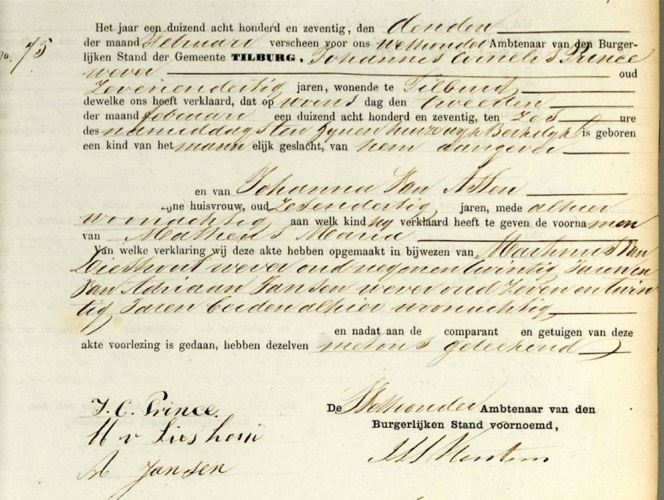 Het jaar een duizend acht honderd en zeventig, den derden
No. 75
der maand Februari verscheen voor ons Wethouder Ambtenaar van den Burger-
lijken Stand der Gemeente TILBURG, Johannes Cornelis Prince
wever oud
Zevenendertig jaren, wonende te Tilburg
dewelke ons heeft verklaard, dat op woens dag den tweeden
der maand Februari een duizend acht honderd en zeventig, ten Zes ure
des namiddags ten zijnen huize wijk Berkdijk is geboren
een kind van het mann elijk geslacht, van hem aangever
en van Johanna Van Asten
zijne huisvrouw, oud Zesendertig jaren, mede alhier
woonachtig aan welk kind hij verklaard heeft te geven de voorna men
van Matheus Maria
Van welke verklaring wij deze akte hebben opgemaakt in bijwezen van Martinus Van
Lieshout wever oud negenen twintig Jaren en
van Adriaan Jansen wever oud Zeven en twin
tig Jaren beiden alhier woonachtig
en nadat aan de comparant en getuigen van deze
akte voorlezing is gedaan, hebben dezelven met ons geteekend
De Wethouder Ambtenaar van den
Burgerlijken Stand voornoemd,
J. C. Prince
M v Lieshout
A Jansen